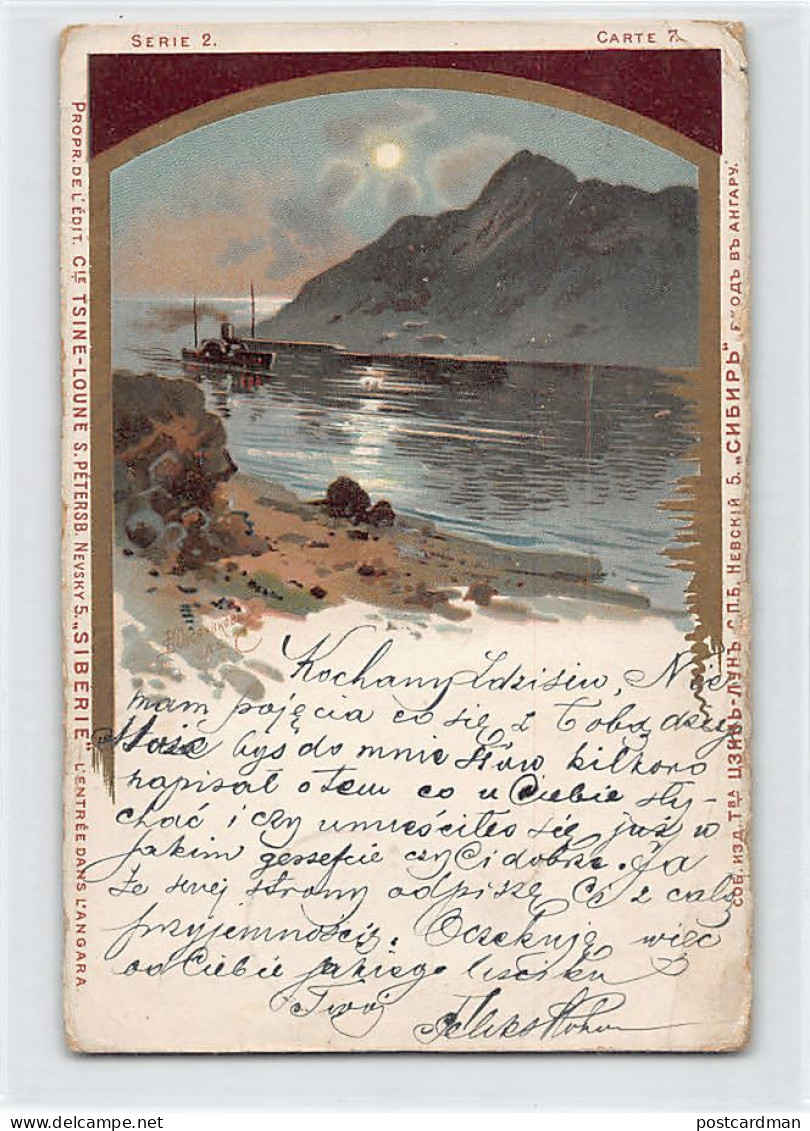 SERIE 2.
CARTE 7.
PROPR. DE L'ÉDIT. CIE TSINE-LOUNE S. PÉTERSB. NEVSKY 5. „SIBERIE" L'ENTRÉE DANS L'ANGARA.
СОБ. ИЗД. ТВА ЦЗИНЬ-ЛУНЬ С.П.Б. НЕВСКІЙ 5. „СИБИРЬ" ВХОДЪ ВЪ АНГАРУ.
Kochany Zdzisiu, Nie
mam pojęcia co się z Tobą dzieje
byś do mnie słów kilkoro
napisał o tem co u Ciebie sły-
chać i czy umieściłeś się już w
jakim gessefcie czy Ci dobrze. Ja
ze swej strony odpiszę Ci z całą
przyjemnością. Oczekuję więc
od Ciebie jakiego liściku
Twój Feliks
postcardman